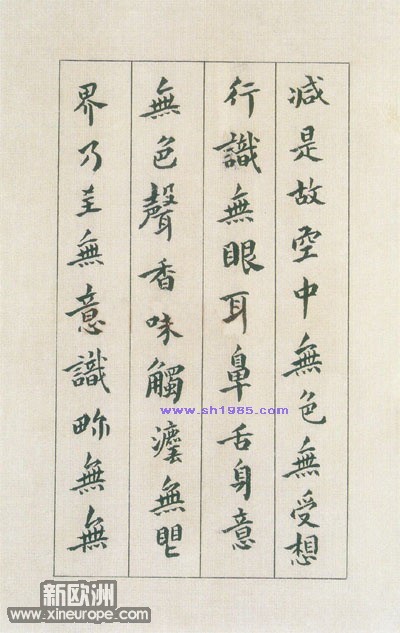 減是故空中無色無受想
行識無眼耳鼻舌身意
無色聲香味觸灋無眼
界乃至無意識畍無無
www.sh1985.com
新欧洲
www.xineurope.com